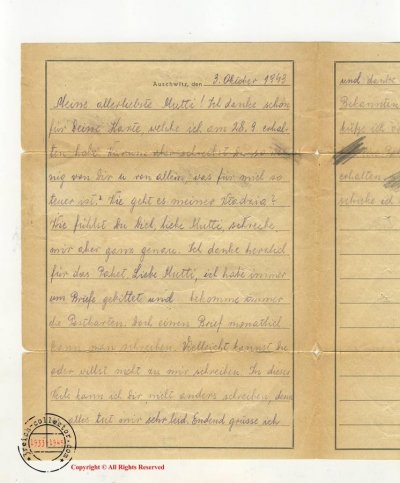 Auschwitz, den 3. Oktober 1943
Meine allerliebste Mutti! Ich danke schön
für Deine Karte, welche ich am 28.9 erhal-
ten habe. Warum aber schreibst Du so we-
nig von Dir u von allem, was für mich so
teuer ist? Wie geht es meiner Władzia?
Wie fühlst Du Dich, liebe Mutti, schreibe
mir aber ganz genau. Ich danke herzlich
für das Paket. Liebe Mutti, ich habe immer
um Briefe gebittet und bekomme immer
die Postkarten. Doch einen Brief monatlich
kann man schreiben. Vielleicht kannst Du
oder willst nicht zu mir schreiben. In dieser
kann ich dir nicht anders schreiben, denn
alles tut mir sehr leid. Endend grüsse ich
und danke
Bekannten
küße
erhalten
schicke ich
reich-collector.com
1933-1945
Copyright © All Rights Reserved